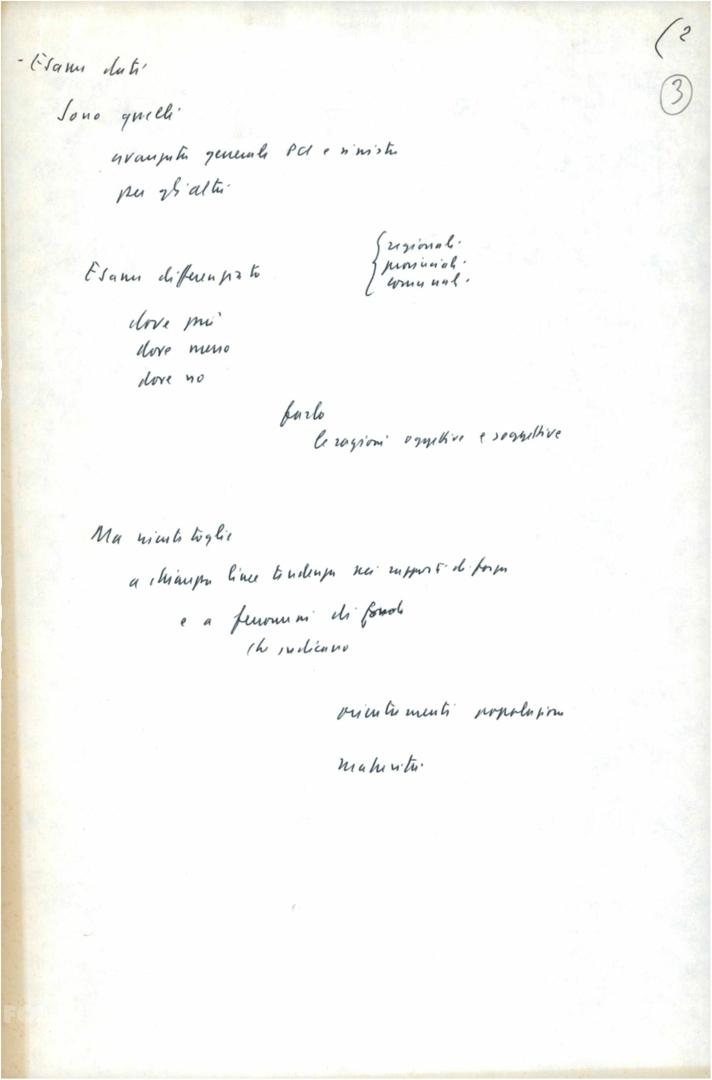 (2
3
- Esame dati
Sono quelli
avanzata generale PCI e sinistra
per gli altri
Esame differenziato
{ regionali.
provinciali.
comunali.
dove più
dove meno
dove no
farlo
le ragioni oggettive e soggettive
Ma niente toglie
a chiarezza linee tendenza nei rapporti di forza
e a fenomeni di fondo
che indicano
orientamenti popolazione
maturità